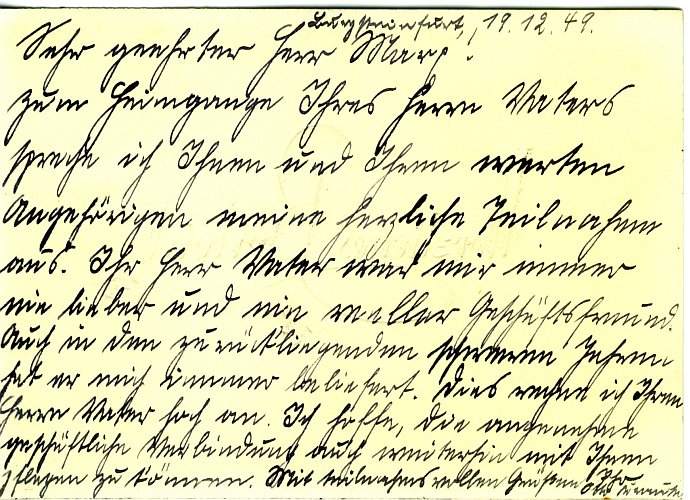 Burgsteinfurt, 19.12.49.
Sehr geehrter Herr Marx.
Zum Heimgange Ihres Herrn Vaters
spreche ich Ihnen und Ihren werten
Angehörigen meine herzliche Teilnahme
aus. Ihr Herr Vater war mir immer
ein lieber und ein reeller Geschäftsfreund.
Auch in den zurückliegenden schweren Jahren
hat er mich immer beliefert. Dies rechne ich Ihrem
Herrn Vater hoch an. Ich hoffe, die angenehme
geschäftliche Verbindung auch weiterhin mit Ihnen
pflegen zu können. Mit teilnahmsvollen Grüßen Ihr